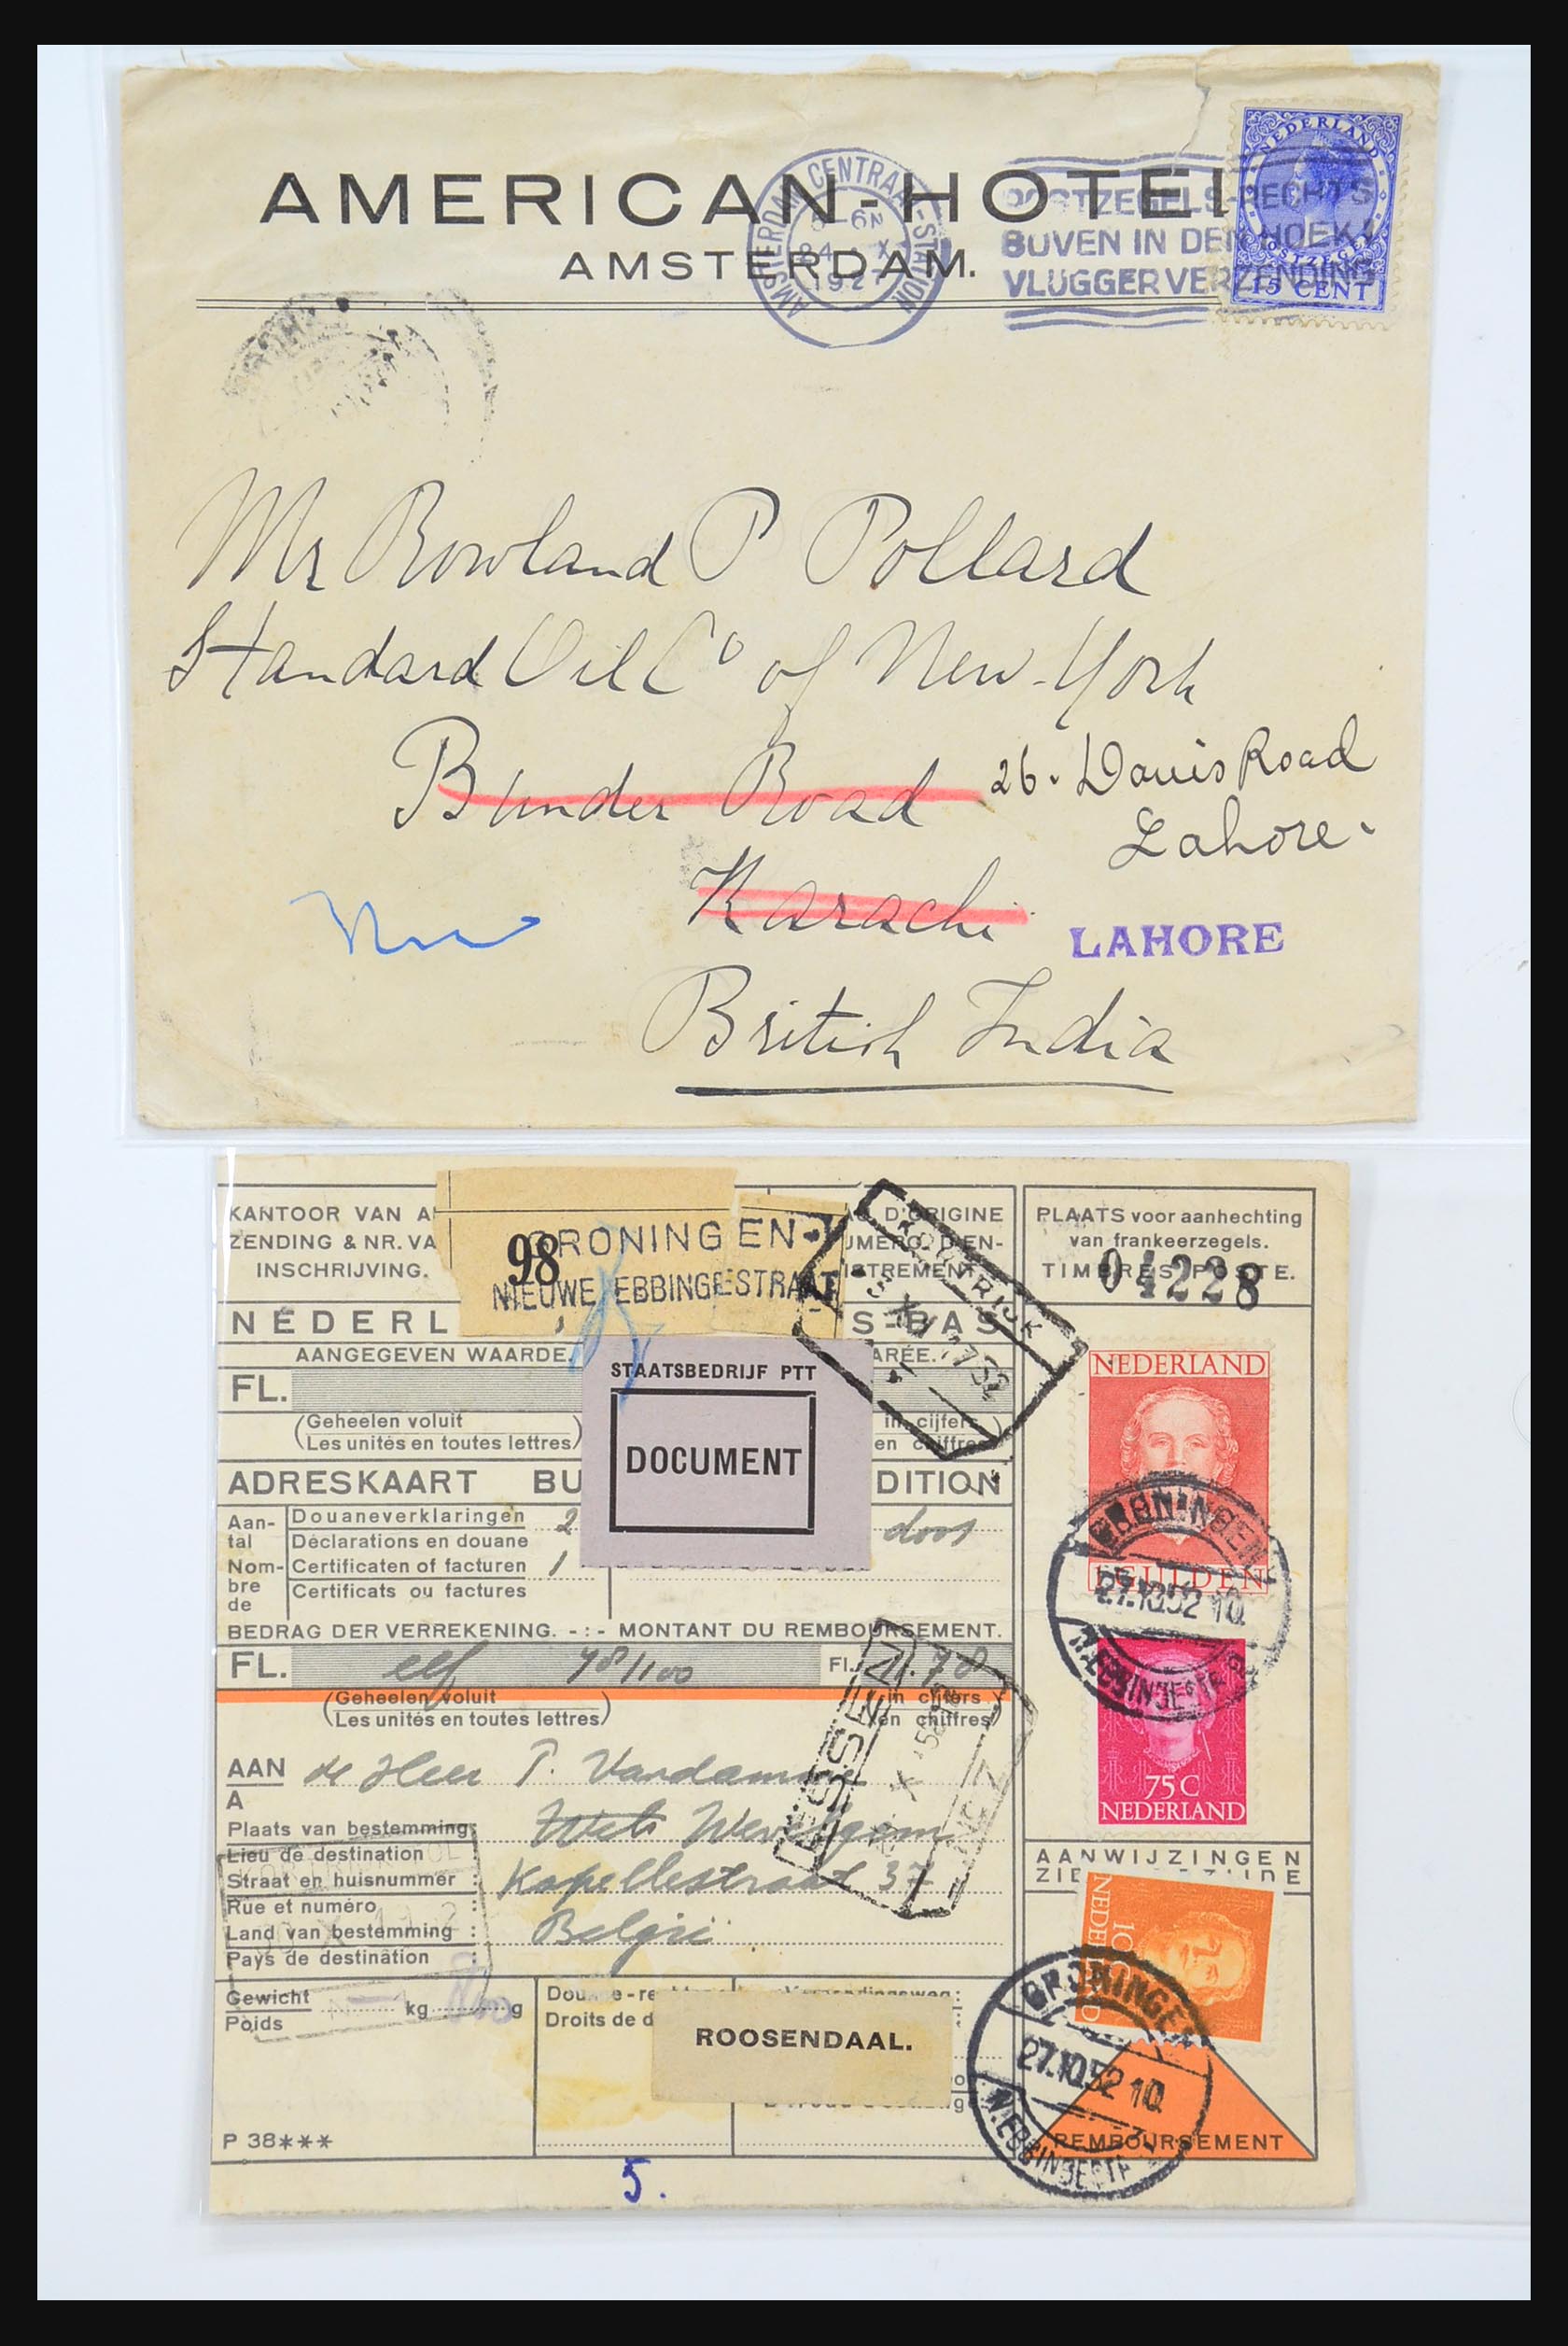 AMERICAN-HOTEL
AMSTERDAM.
AMSTERDAM CENTRAAL-STATION
5-6N
24 X
1927
POSTZEGELS RECHTS
BOVEN IN DEN HOEK
VLUGGER VERZENDING
NEDERLAND
POSTZEGEL
15 CENT
Mr Rowland P Pollard
Standard Oil Co of New-York
Bunder Road
26. Davis Road
Lahore.
Karachi
LAHORE
British India
KANTOOR VAN A
ZENDING & NR. VA
INSCHRIJVING.
98
GRONINGEN-
NIEUWE EBBINGESTRAAT
D'ORIGINE
NUMERO D'EN-
ISTREMENT
KOURTRIJK
PLAATS voor aanhechting
van frankeerzegels.
TIMBRES POSTE.
04228
NEDERL
S-BAS
AANGEGEVEN WAARDE.
ARÉE.
FL.
STAATSBEDRIJF PTT
DOCUMENT
(Geheelen voluit
Les unités en toutes lettres)
in cijfers
en chiffres)
ADRESKAART BU
DITION
Aan-
tal
Nom-
bre
de
Douaneverklaringen
Déclarations en douane
2
doos
Certificaten of facturen
Certificats ou factures
1
BEDRAG DER VERREKENING. -:- MONTANT DU REMBOURSEMENT.
FL. elf 78/100 Fl. 11.78
(Geheelen voluit
Les unités en toutes lettres)
(in cijfers
en chiffres)
NEDERLAND
1 GULDEN
GRONINGEN
27.10.52 10
N. EBBINGESTR
75 C
NEDERLAND
AAN de Heer P. Vandamme
A
ESSEN
Plaats van bestemming: Wevelgem
Lieu de destination
Straat en huisnummer : Kapellestraat 37
Rue et numéro
Land van bestemming : België
Pays de destination :
AANWIJZINGEN
ZIE
Gewicht
Poids
kg
g
Droits de d
ROOSENDAAL.
GRONINGEN
27.10.52 10
N. EBBINGESTR
REMBOURSEMENT
P 38***
5.